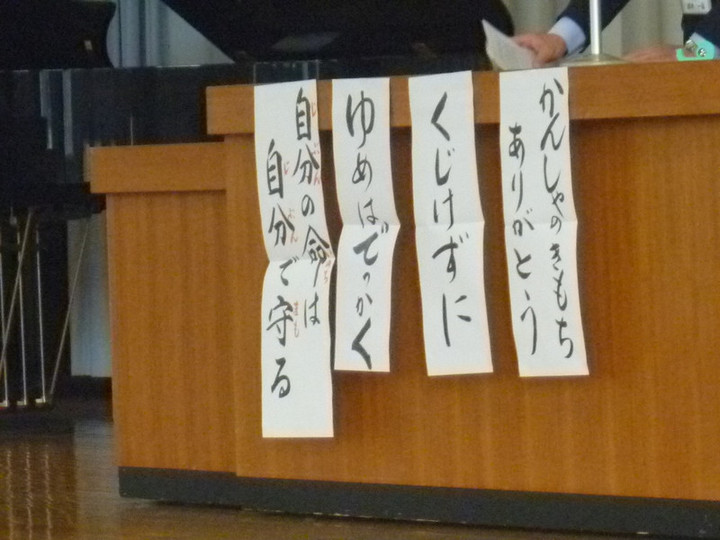 かんしゃのきもち
ありがとう
くじけずに
ゆめはでっかく
自分の命は
自分で守る